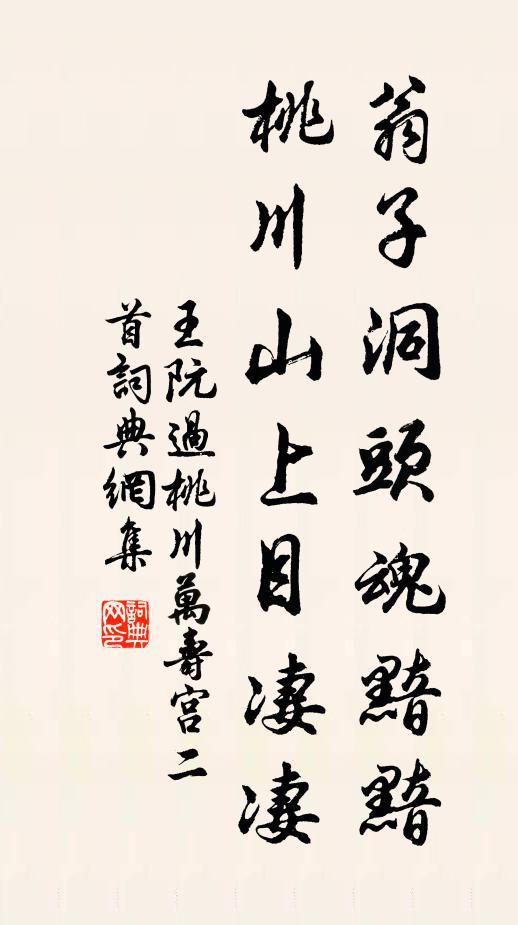 翁子洞頭魂黯黯
桃川山上目淒淒
王阮過桃川萬壽宮二
首詞典網集
詞典
网印